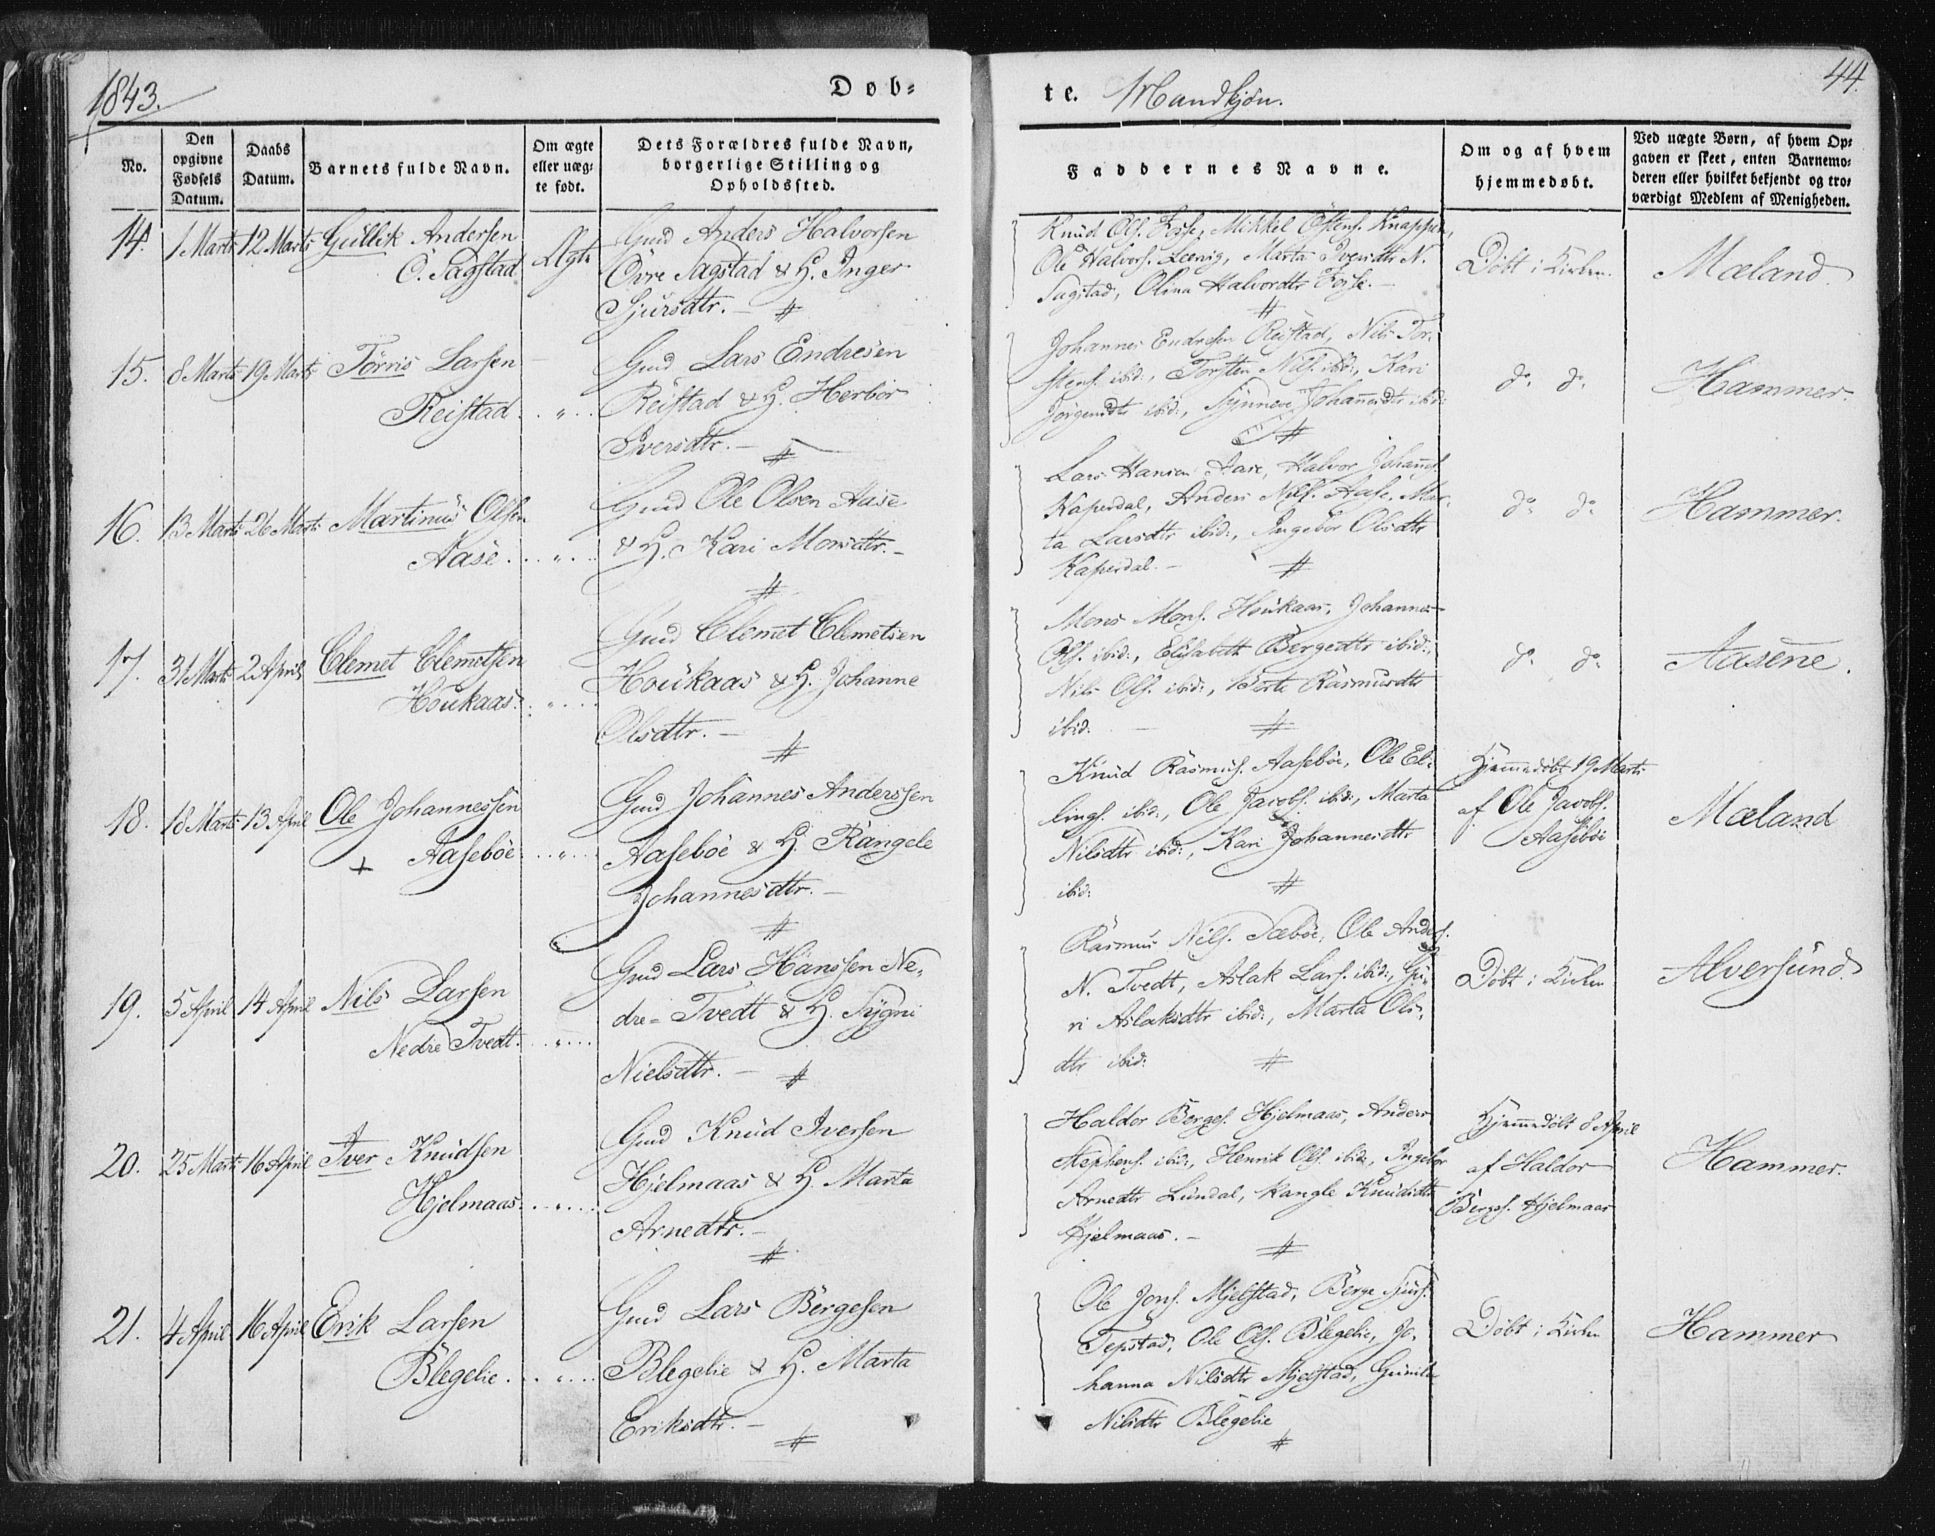 1843.
Døb-
te. Mandkjøn.
44.
No.
Den opgivne Fødsels Datum.
Daabs Datum.
Barnets fulde Navn.
Om ægte eller uæg-
te født.
Dets Forældres fulde Navn,
borgerlige Stilling og
Opholdssted.
Faddernes Navne.
Om og af hvem
hjemmedøbt.
Ved uægte Børn, af hvem Op-
gaven er skeet, enten Barnemo-
deren eller hvilket bekjendt og tro-
værdigt Medlem af Menigheden.
14. 1 Marts 12 Marts Gullik Andersen
Ö. Sagstad Ægte
Gmd Anders Halvorsen
Övre Sagstad & H. Inger
Sjursdtr. —
Knud Ols. Fosse, Mikkel Östens. Knappen,
Ole Halvors. Leenig, Marta Iversdtr N.
Sagstad, Olina Halvordtr Fosse. —
Döbt i Kirken.
Mæland.
15. 8 Marts 19 Marts Törris Larsen
Reistad . . " . .
Gmd Lars Endresen
Reistad & H. Herbor
Iversdtr. —
Johannes Endresen Reistad, Nils Tor-
stens. ibid:, Torsten Nils. ibid:, Kari
Jörgensdtr ibid:, Synneve Johannesdtr ibid:
do. do.
Hammer.
16. 13 Marts 26 Marts Martinus Olsen
Aase . . " . .
Gmd Ole Olsen Aase
& H. Kari Monsdtr. —
Lars Hansen Aase, Halvor Johans.
Kaperdal, Anders Nils. Aase, Mar-
ta Larsdtr ibid:, Ingebor Olsdtr
Kaperdal. —
do. do.
Hammer.
17. 31 Marts 2 April Clemet Clemetsen
Houkaas . . " . .
Gmd Clemet Clemetsen
Houkaas & H. Johanne
Olsdtr. —
Mons Mons. Houkaas, Johannes
Ols. ibid:, Elisabeth Bergedtr ibid:,
Nils Ols. ibid:, Berte Rasmusdtr
ibid: —
do. do.
Aasene.
18. 18 Marts 13 April Ole Johannessen
+ Aaseböe . . " . .
Gmd Johannes Anderssen
Aaseböe & H. Rangele
Johannesdtr. —
Knud Rasmus. Aaseböe, Ole El-
lings. ibid:, Ole Jacobs. ibid:, Marta
Nilsdtr ibid:, Kari Johannesdtr
ibid:
Hjemmedöbt 19 Marts
af Ole Jacobs.
Aaseböe
Mæland
19. 5 April 14 April Nils Larsen
Nedre Tvedt . . " . .
Gmd Lars Hanssen Ne-
dre- Tvedt & H. Sygni
Nielsdtr. —
Rasmus Nils. Sæböe, Ole Anders.
N. Tvedt, Aslak Lars. ibid:, Gu-
ri Aslaksdtr ibid:, Marta Ols-
dtr ibid:
Döbt i Kirken
Alversund
20. 25 Marts 16 April Iver Knudsen
Hjelmaas . . " . .
Gmd Knud Iversen
Hjelmaas & H. Marta
Arnedtr. —
Haldor Berges. Hjelmaas, Anders
Stephens. ibid:, Henrik Ols. ibid:, Ingebor
Arnedtr Lundal, Rangle Knudsdtr
Hjelmaas. —
Hjemmedöbt 8 April
af Haldor
Bergs. Hjelmaas
Hammer.
21. 4 April 16 April Erik Larsen
Blegelie . . " . .
Gmd Lars Bergesen
Blegelie & H. Marta
Eriksdtr. —
Ole Jons. Mjelstad, Berge Sjurs.
Tepstad, Ole Ols. Blegelie, Jo-
hanna Nilsdtr Mjelstad, Gunila
Nilsdtr Blegelie
Döbt i Kirken
Hammer